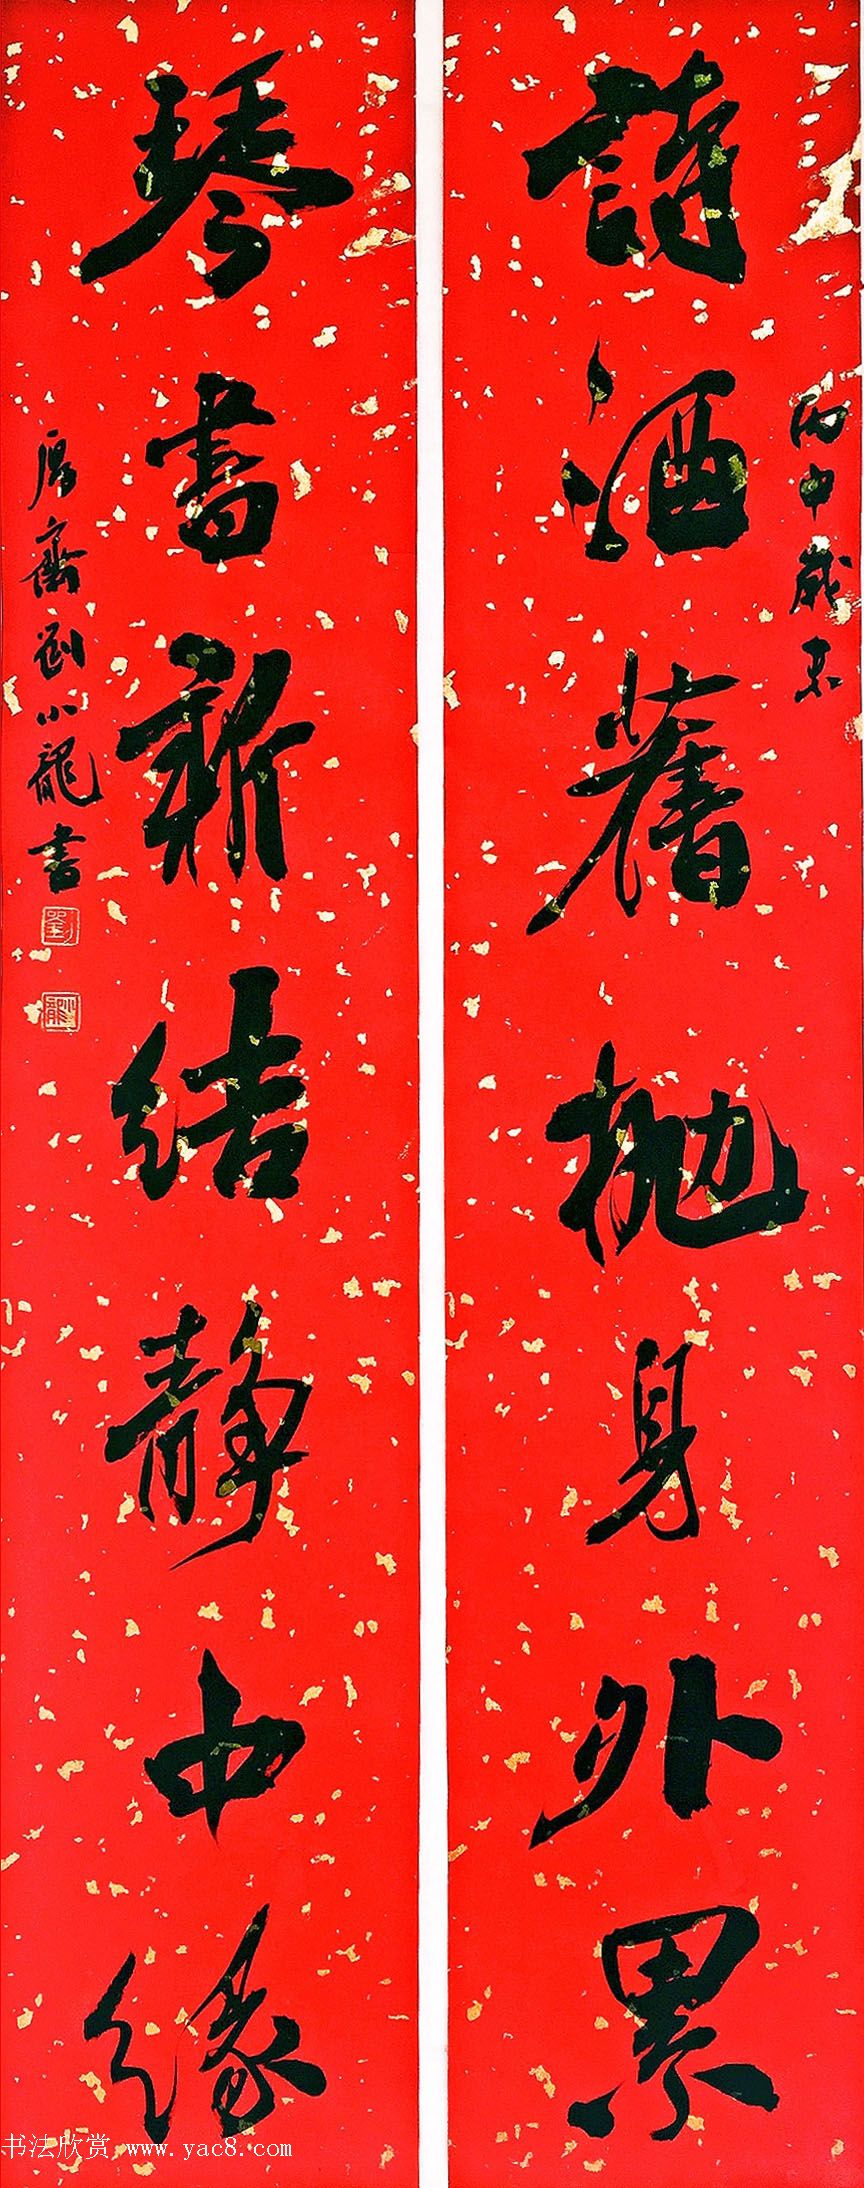 丙申歲末
詩酒舊抛身外累
琴書新結靜中緣
厚齋劉小龍書
劉
小龍
书法欣赏 www.yac8.com